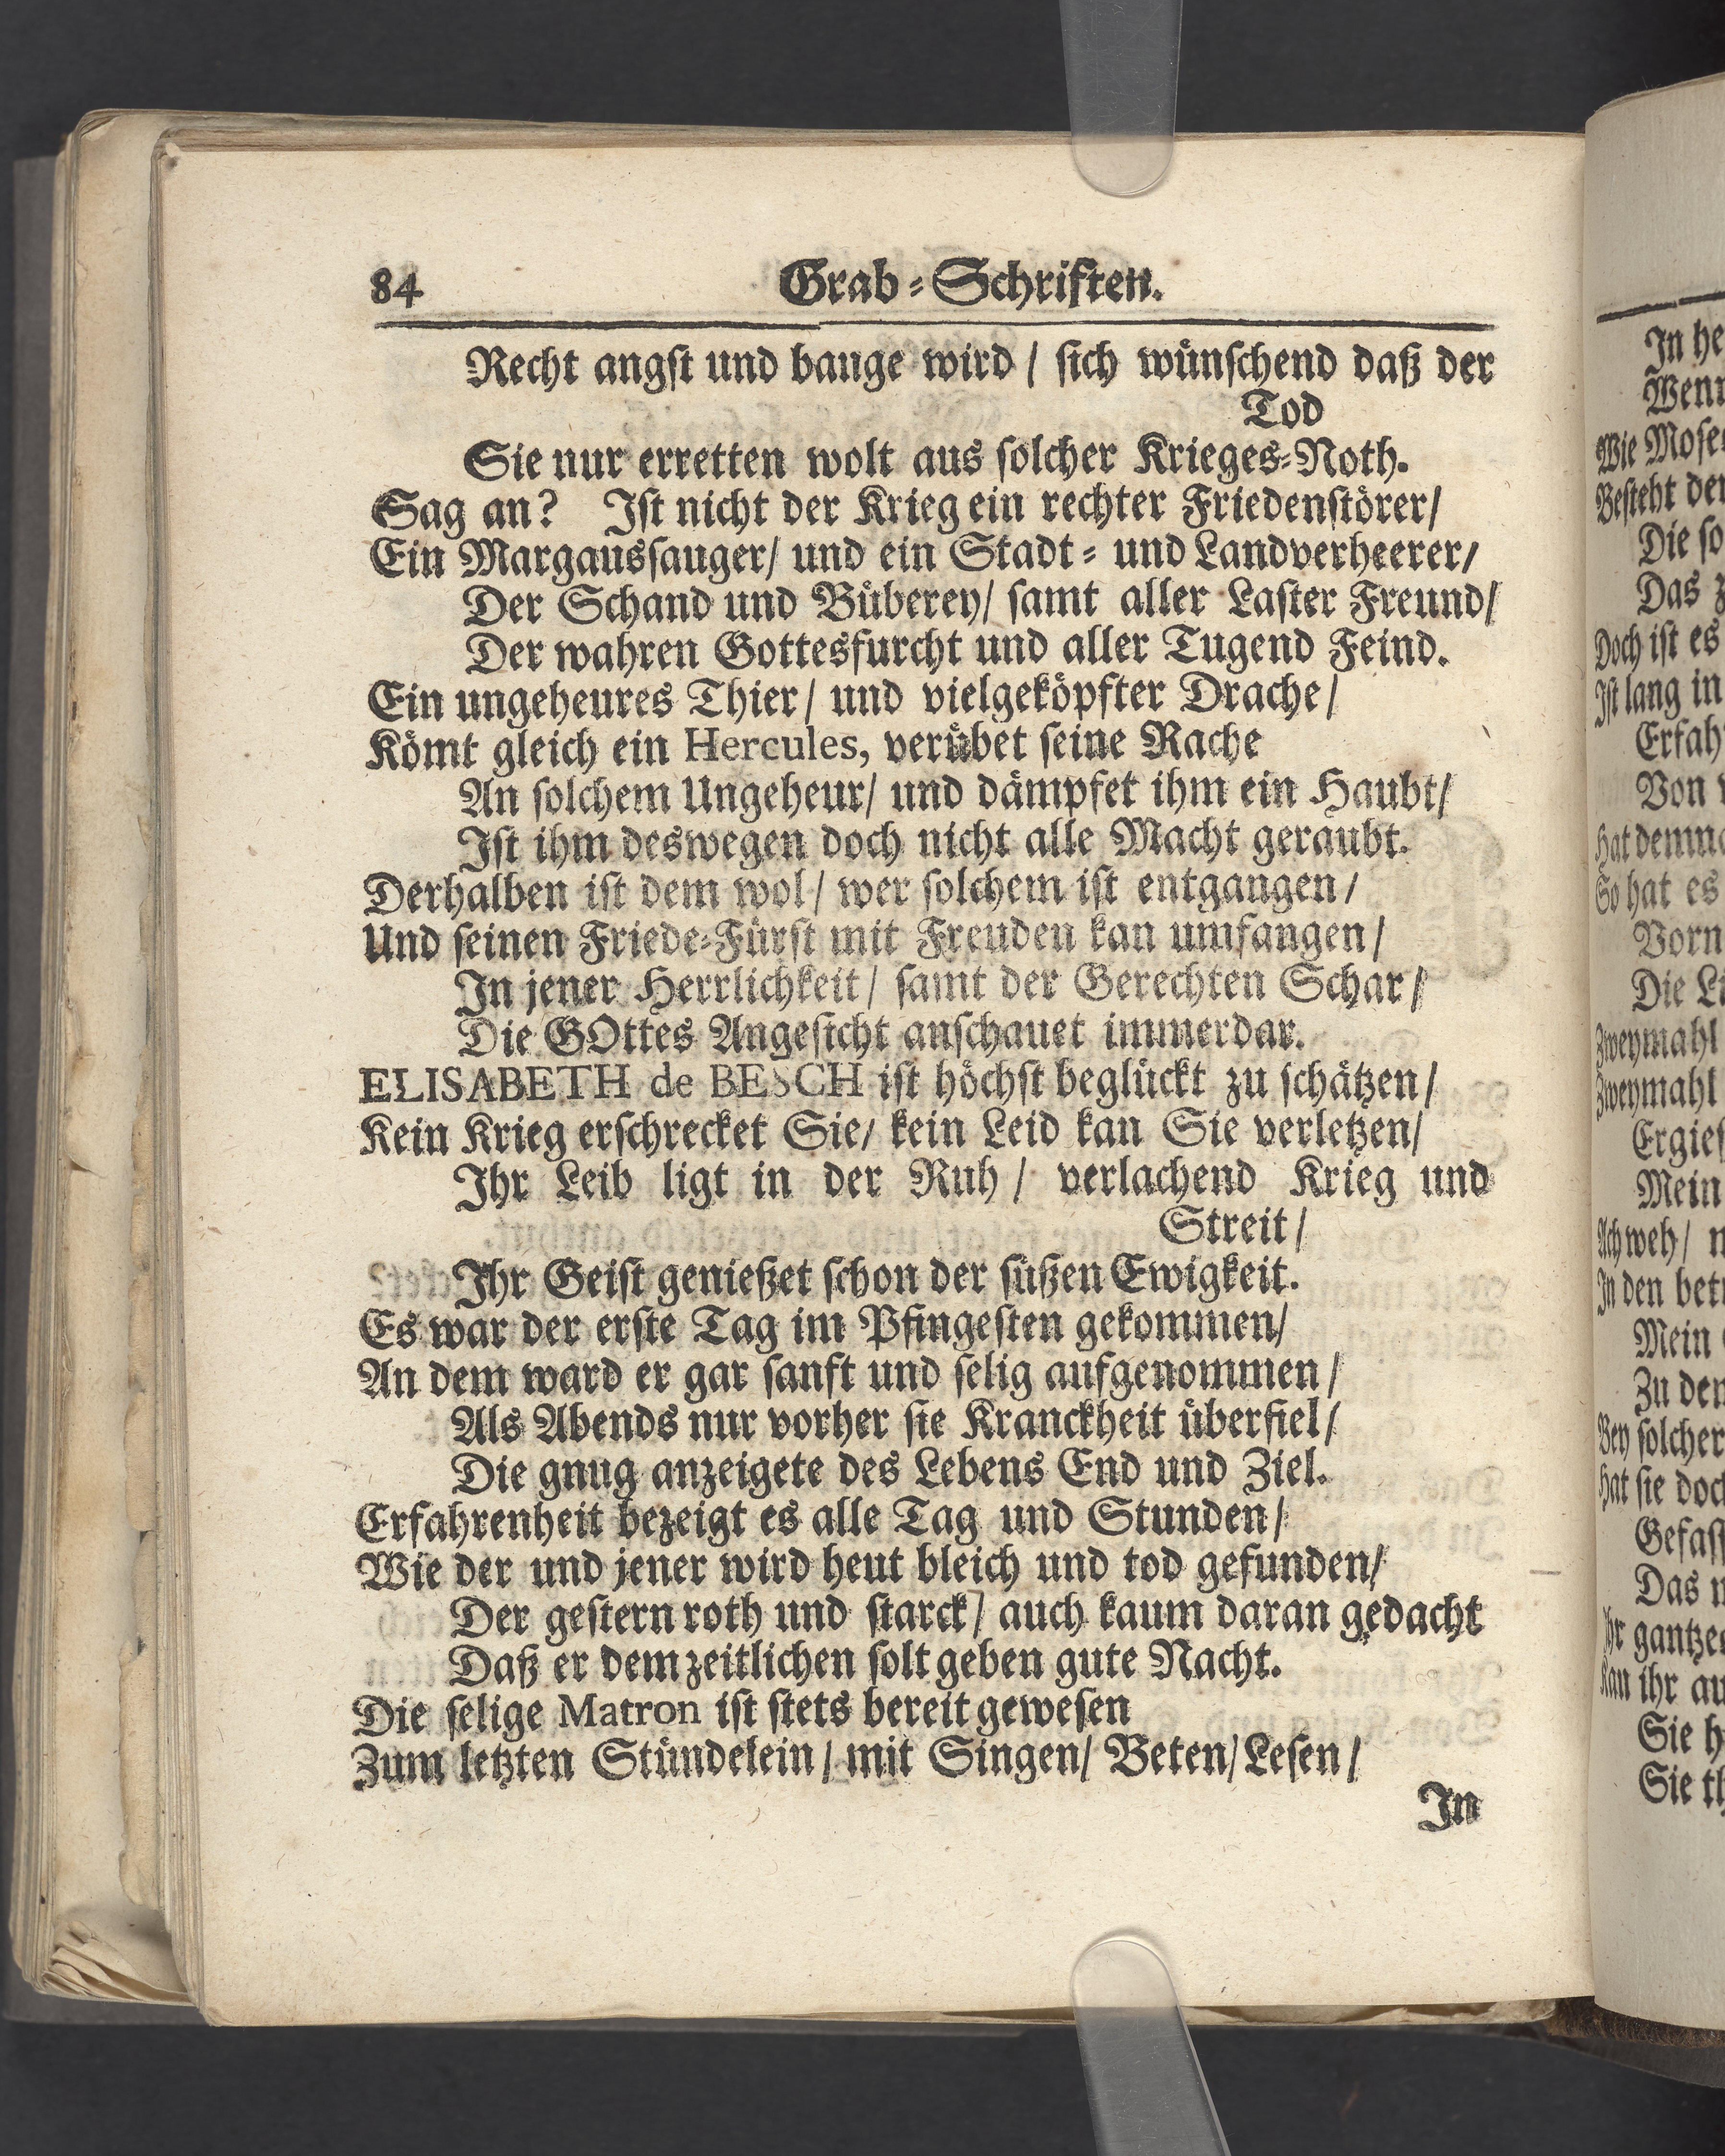 84 Grab-Schriften.
Recht angst und bange wird / sich wünschend daß der
Tod
Sie nur erretten wolt aus solcher Krieges-Noth.
Sag an? Ist nicht der Krieg ein rechter Friedenstörer/
Ein Margaussauger/ und ein Stadt- und Landverheerer/
Der Schand und Büberey/ samt aller Laster Freund/
Der wahren Gottesfurcht und aller Tugend Feind.
Ein ungeheures Thier/ und vielgeköpfter Drache/
Kömt gleich ein Hercules, verübet seine Rache
An solchem Ungeheur/ und dämpfet ihm ein Haubt/
Ist ihm deswegen doch nicht alle Macht geraubt.
Derhalben ist dem wol/ wer solchem ist entgangen/
Und seinen Friede-Fürst mit Freuden kan umfangen/
In jener Herrlichkeit/ samt der Gerechten Schar/
Die GOttes Angesicht anschauet immerdar.
ELISABETH de BESCH ist höchst beglückt zu schätzen/
Kein Krieg erschrecket Sie/ kein Leid kan Sie verletzen/
Ihr Leib ligt in der Ruh/ verlachend Krieg und
Streit/
Ihr Geist genießet schon der süßen Ewigkeit.
Es war der erste Tag im Pfingesten gekommen/
An dem ward er gar sanft und selig aufgenommen/
Als Abends nur vorher sie Kranckheit überfiel/
Die gnug anzeigete des Lebens End und Ziel.
Erfahrenheit bezeigt es alle Tag und Stunden/
Wie der und jener wird heut bleich und tod gefunden/
Der gestern roth und starck/ auch kaum daran gedacht
Daß er dem zeitlichen solt geben gute Nacht.
Die selige Matron ist stets bereit gewesen
Zum letzten Stündelein/ mit Singen/ Beten/ Lesen/
In
In
Wie
Besteht
Die
Das
Doch ist es
Ist lang in
Von
So hat es
Die
Zweymahl
Zweymahl
Mein
Ach weh/
In den
Mein
Zu
Bey solcher
Hat sie
Das
ihr
Sie
Sie